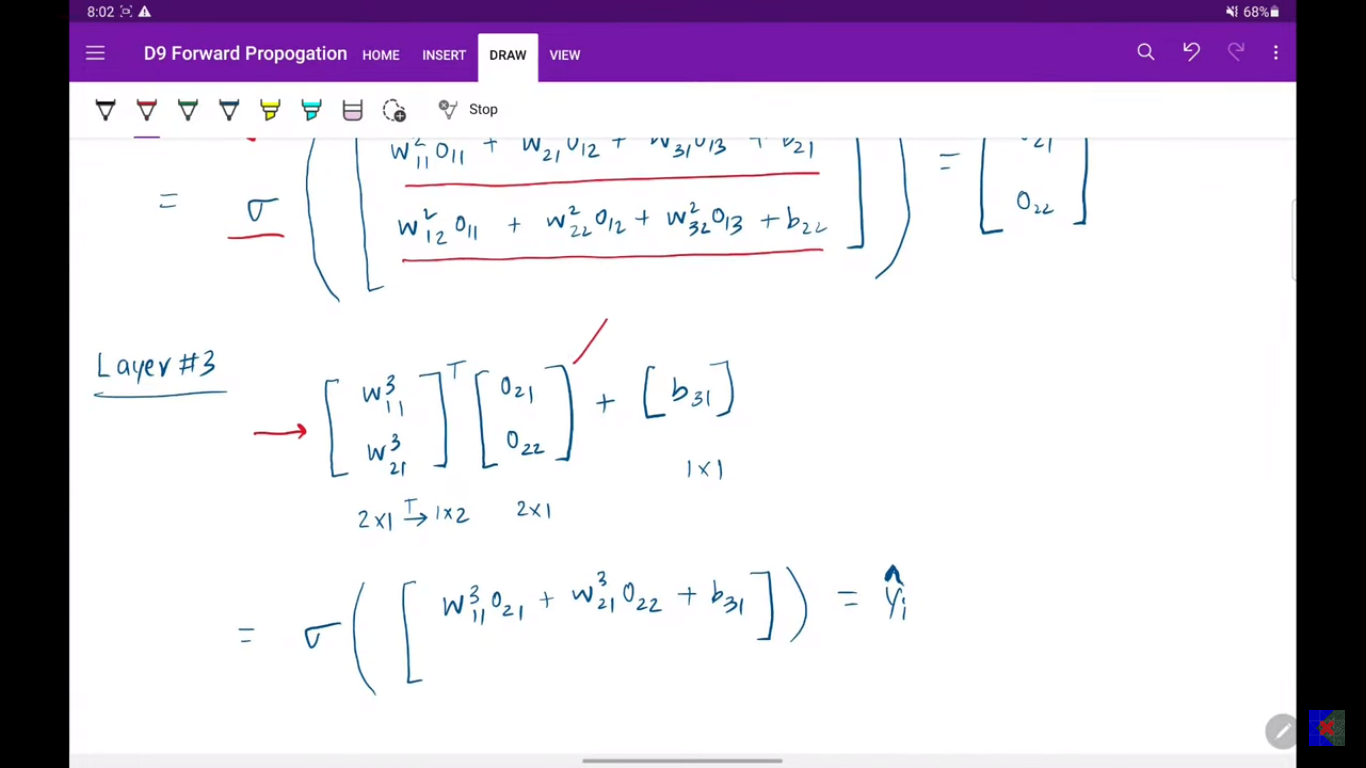 8:02 68%
D9 Forward Propogation HOME INSERT DRAW VIEW
Stop
w²₁₁o₁₁ + w₂₁o₁₂ + w₃₁o₁₃ + b₂₁
= σ = o₂₁
w²₁₂o₁₁ + w²₂₂o₁₂ + w²₃₂o₁₃ + b₂₂ o₂₂
Layer #3
[w³₁₁ w³₂₁]ᵀ [o₂₁ o₂₂] + [b₃₁]
2x1 →ᵀ 1x2 2x1 1x1
= σ([w³₁₁o₂₁ + w³₂₁o₂₂ + b₃₁]) = ŷᵢ